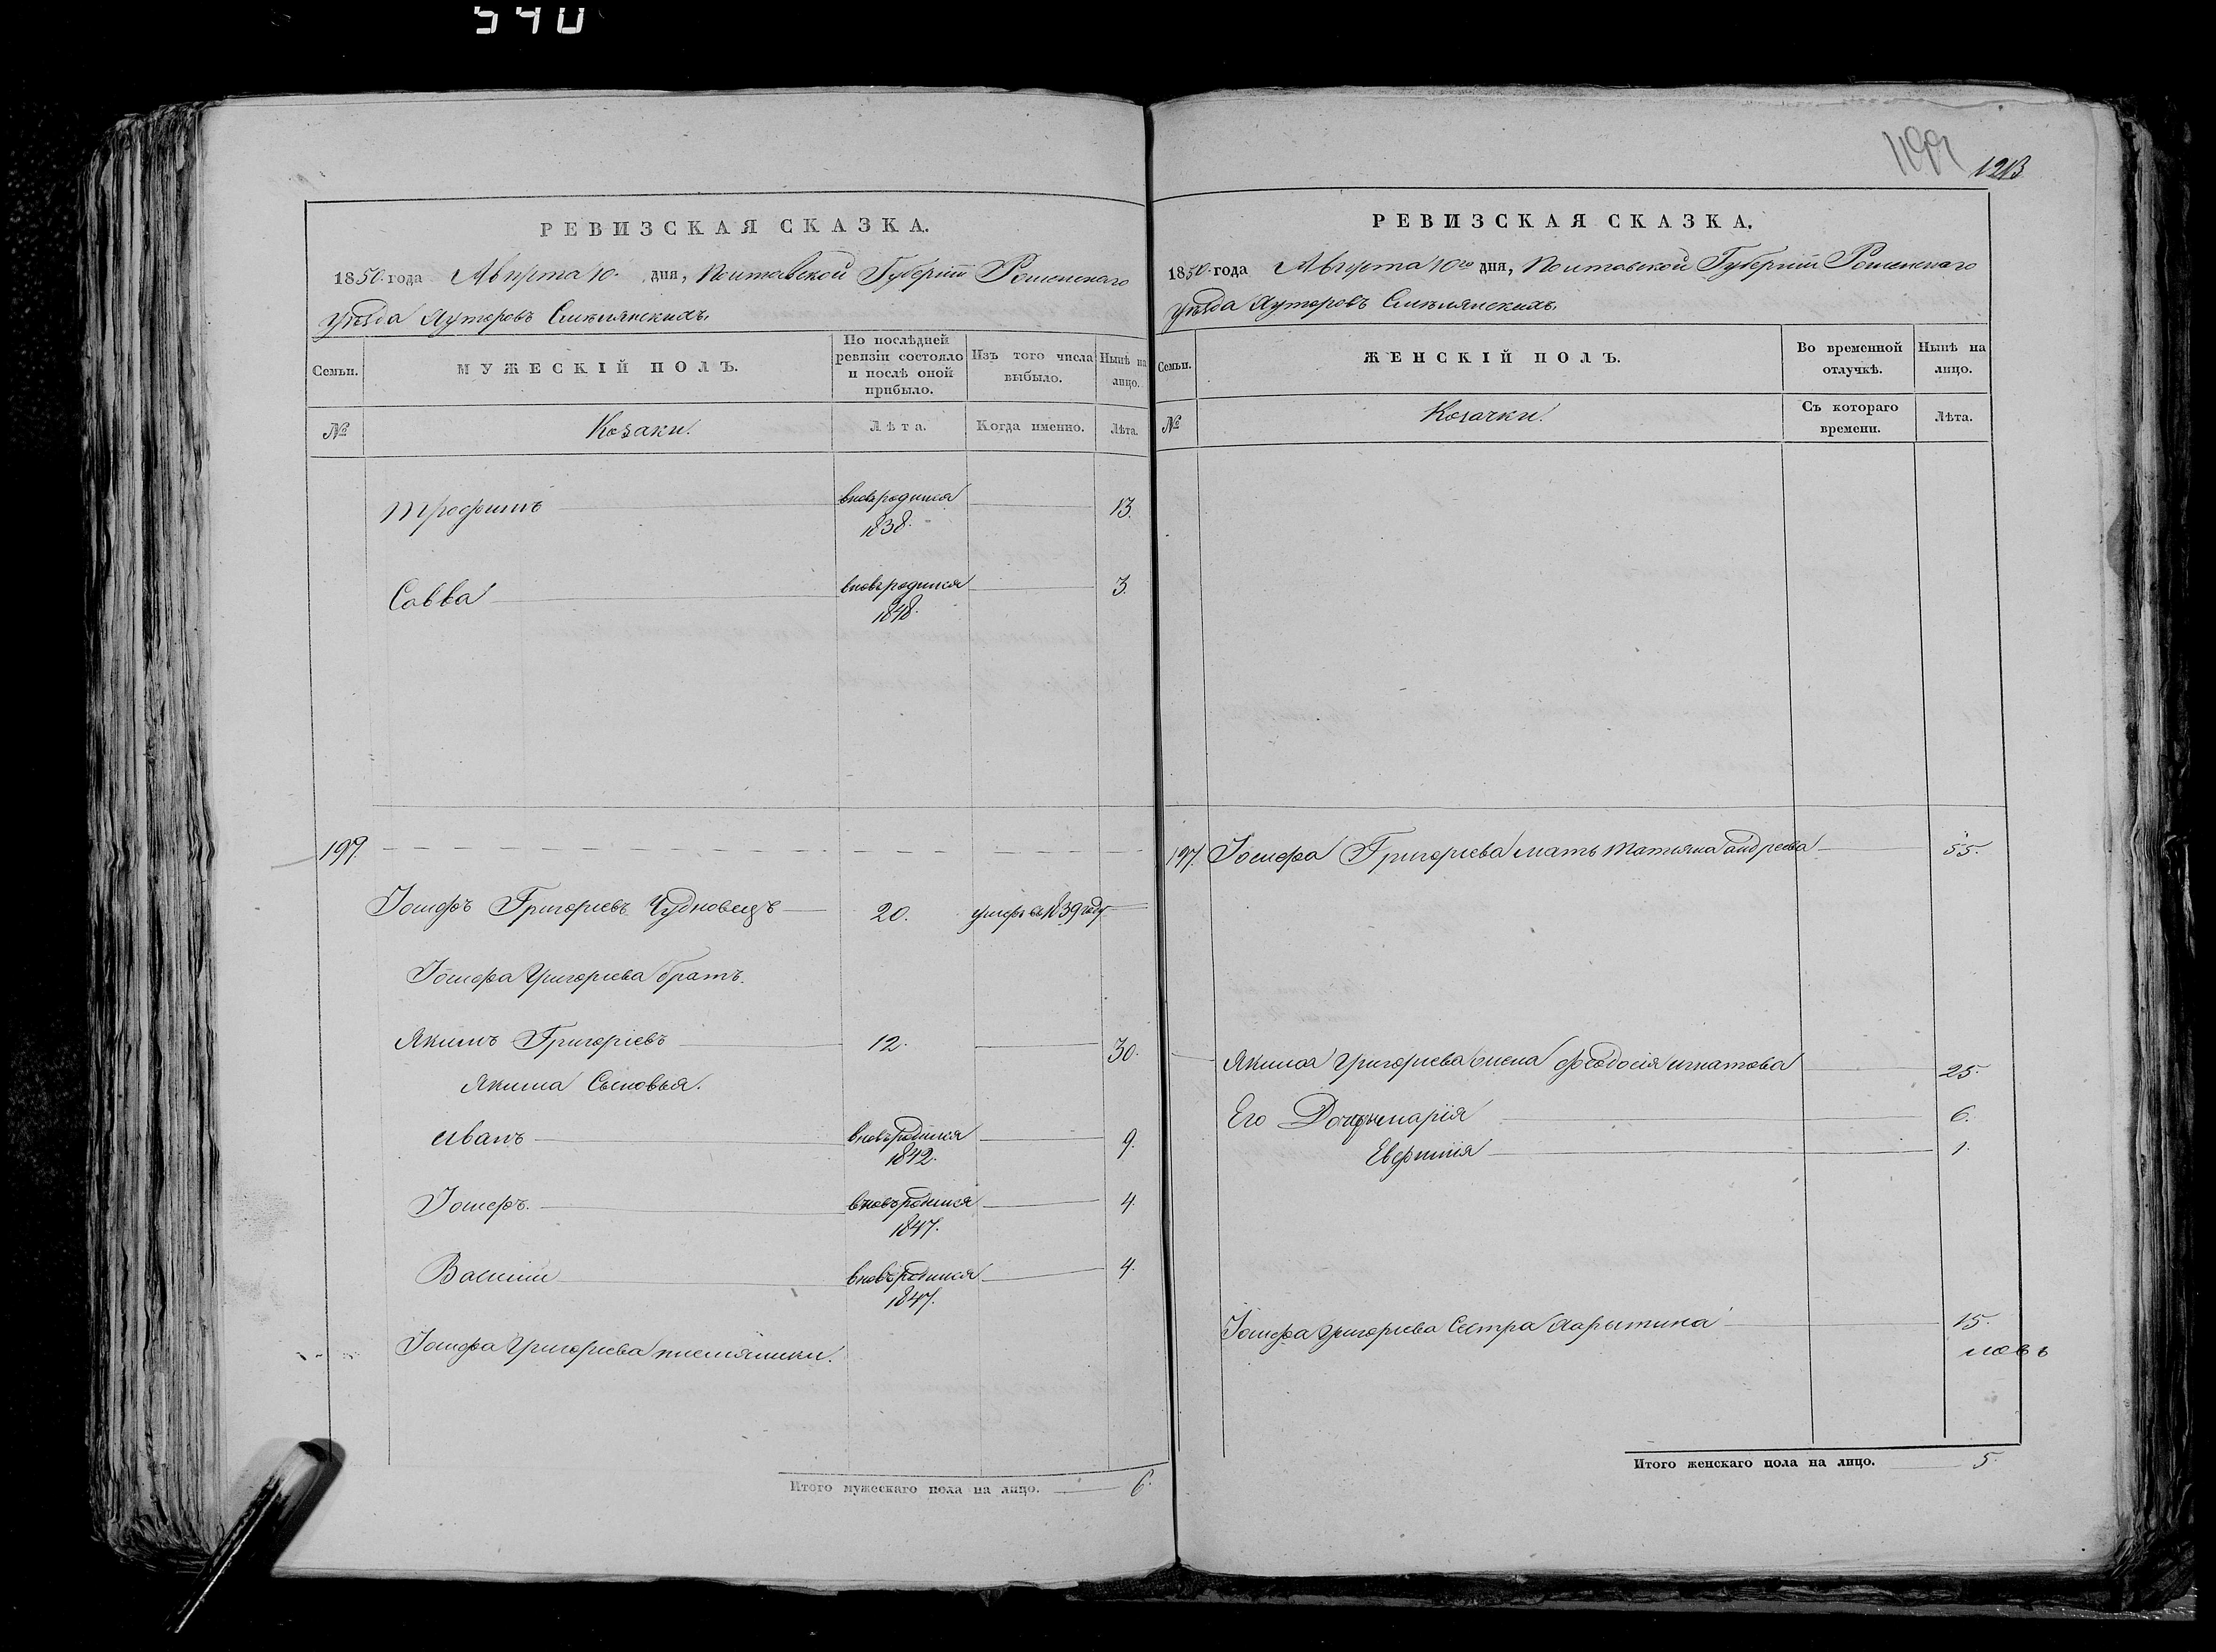 540
1213
РЕВИЗСКАЯ СКАЗКА.
1850 года Августа 10 дня, Полтавской Губерніи Роменскаго
уѣзда Хуторовъ Смѣлянскихъ,
Семьи.
МУЖЕСКІЙ ПОЛЪ.
По послѣдней ревизіи состояло и послѣ оной прибыло.
Изъ того числа выбыло.
Нынѣ на лицо.
№
Козаки.
Лѣта.
Когда именно.
Лѣта.
Трофимъ вновьродился 13.
1838.
Савва вновьродился 3.
1848.
197.
Іосифъ Григорьевъ Чудновецъ 20. умеръ въ 1839 году
Іосифа Григорьева братъ.
Якимъ Григоріевъ 12. 30.
Якима Сыновья.
Иванъ вновьродился 9.
1842.
Іосифъ. вновьродился 4.
1847.
Василій вновьродился 4.
1847.
Іосифа Григорьева племянники.
Итого мужескаго пола на лицо. 6.
РЕВИЗСКАЯ СКАЗКА.
1850 года Августа 10го дня, Полтавской Губерніи Роменскаго
уѣзда Хуторовъ Смѣлянскихъ,
Семьи.
ЖЕНСКІЙ ПОЛЪ.
Во временной отлучкѣ.
Нынѣ на лицо.
№
Козачки.
Съ котораго времени.
Лѣта.
197. Іосифа Григорьева мать Татияна андреева 55.
Якима Григорьева жена феодосія игнатова 25.
Его Дочери марія 6.
Евфимія 1.
Іосифа Григорьева Сестра 15.
Итого женскаго пола на лицо. 5.